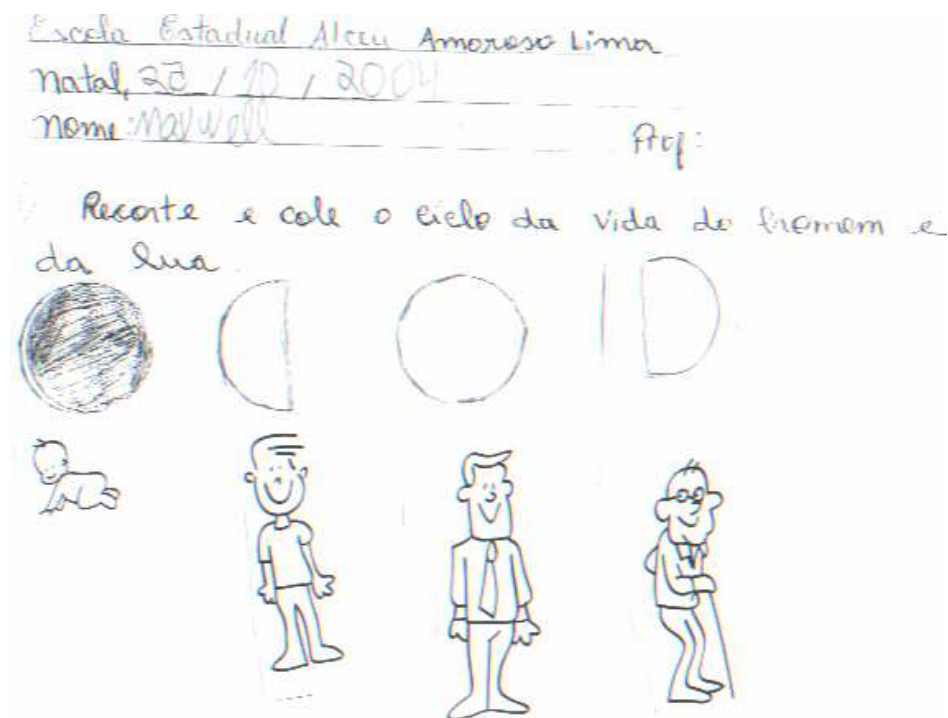 Escola Estadual Alceu Amoroso Lima
Natal, 22 / 10 / 2004
Nome: Maxwell
Prof:
Recorte e cole o ciclo da vida do homem e
da lua.